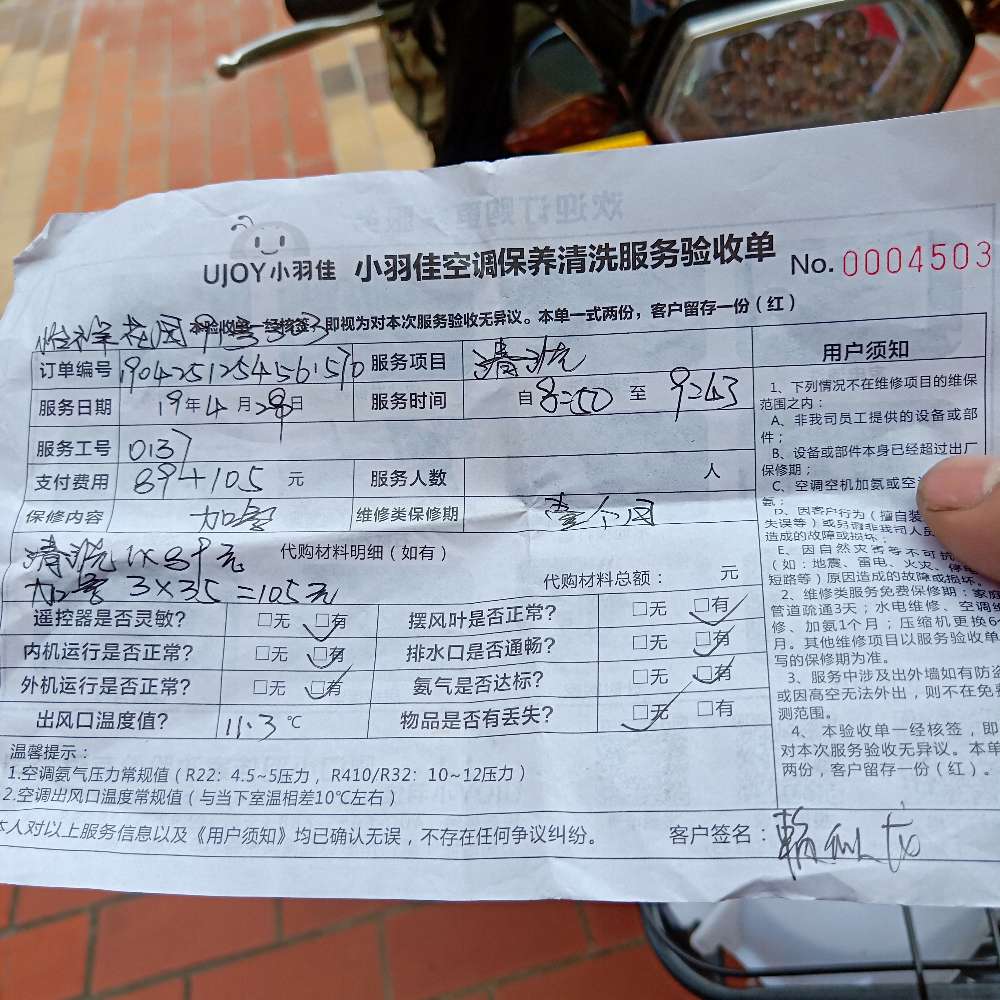 UJOY小羽佳 小羽佳空调保养清洗服务验收单 No.0004503
本验收单一经核签，即视为对本次服务验收无异议。本单一式两份，客户留存一份（红）
订单编号 服务项目 清洗
服务日期 19年4月28日 服务时间 自8:50至9:43
服务工号 0137
支付费用 89+105元 服务人数 人
保修内容 加氨 维修类保修期 壹个月
清洗1×89元 代购材料明细（如有）
加氨 3×35=105元 代购材料总额： 元
遥控器是否灵敏？ □无 □有 摆风叶是否正常？ □无 □有
内机运行是否正常？ □无 □有 排水口是否通畅？ □无 □有
外机运行是否正常？ □无 □有 氨气是否达标？ □无 □有
出风口温度值？ 11.3℃ 物品是否有丢失？ □无 □有
温馨提示：
1.空调氨气压力常规值（R22：4.5~5压力，R410/R32：10~12压力）
2.空调出风口温度常规值（与当下室温相差10℃左右）
本人对以上服务信息以及《用户须知》均已确认无误，不存在任何争议纠纷。 客户签名：
用户须知
1、下列情况不在维修项目的维保
范围之内：
A、非我司员工提供的设备或部
件；
B、设备或部件本身已经超过出厂
保修期；
C、空调空机加氨或空
氨；
D、因客户行为（擅自装
失误等）或另请非我司人员
造成的故障或损坏；
E、因自然灾害等不可抗
（如：地震、雷电、火灾、停电
短路等）原因造成的故障或损坏。
2、维修类服务免费保修期：家庭
管道疏通3天；水电维修、空调维
修、加氨1个月；压缩机更换6个
月。其他维修项目以服务验收单
写的保修期为准。
3、服务中涉及出外墙如有防盗
或因高空无法外出，则不在免费
测范围。
4、本验收单一经核签，即
对本次服务验收无异议。本单
两份，客户留存一份（红）。